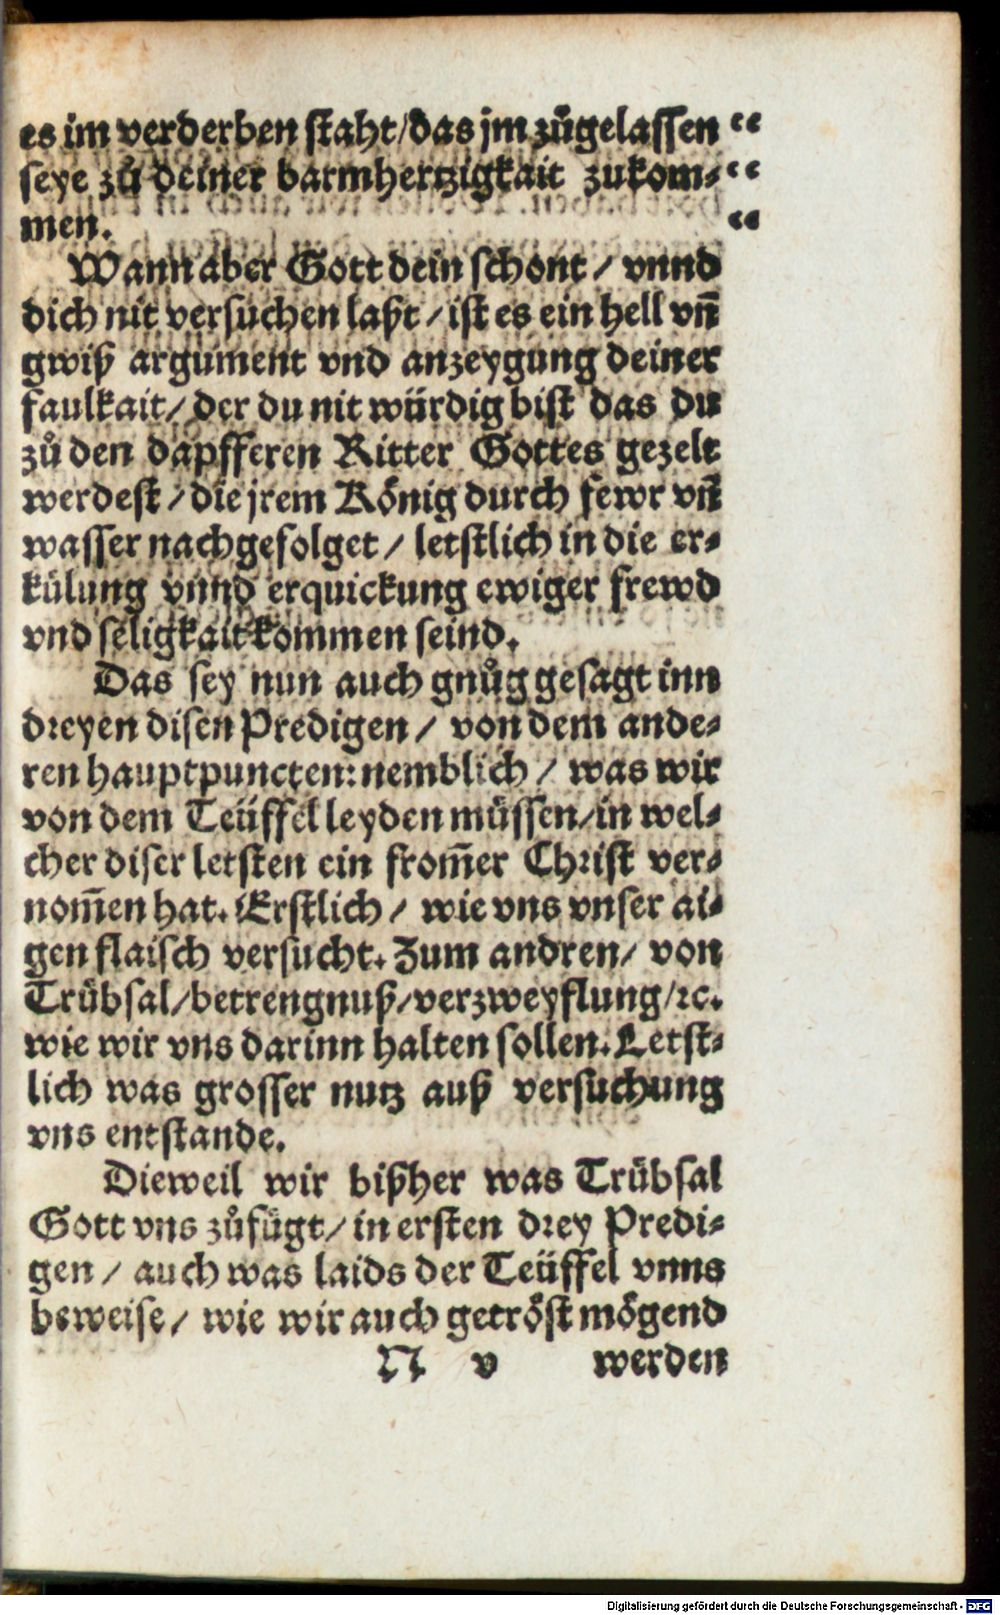 es im verderben staht/das jm zůgelassen “
seye zů deiner barmhertzigkait zukom- “
men. “
Wann aber Gott dein schont / vnnd
dich nit versuchen laßt / ist es ein hell vn̄
gwiß argument vnd anzeygung deiner
faulkait / der du nit würdig bist das du
zů den dapfferen Ritter Gottes gezelt
werdest / die jrem König durch fewr vn̄
wasser nachgefolget / letstlich in die er-
külung vnnd erquickung ewiger frewd
vnd seligkait kommen seind.
Das sey nun auch gnůg gesagt inn
dreyen disen Predigen / von dem ande-
ren hauptpuncten: nemblich / was wir
von dem Teüffel leyden müssen/in wel-
cher diser letsten ein from̄er Christ ver-
nom̄en hat. Erstlich / wie vns vnser ai-
gen flaisch versucht. Zum andren/ von
Trübsal/betrengnuß/verzweyflung/ꝛc.
wie wir vns darinn halten sollen. Letst-
lich was grosser nutz auß versuchung
vns entstande.
Dieweil wir bißher was Trübsal
Gott vns zůfügt/ in ersten drey Predi-
gen / auch was laids der Teüffel vnns
beweise / wie wir auch getröst mögend
N v werden
Digitalisierung gefördert durch die Deutsche Forschungsgemeinschaft - DFG